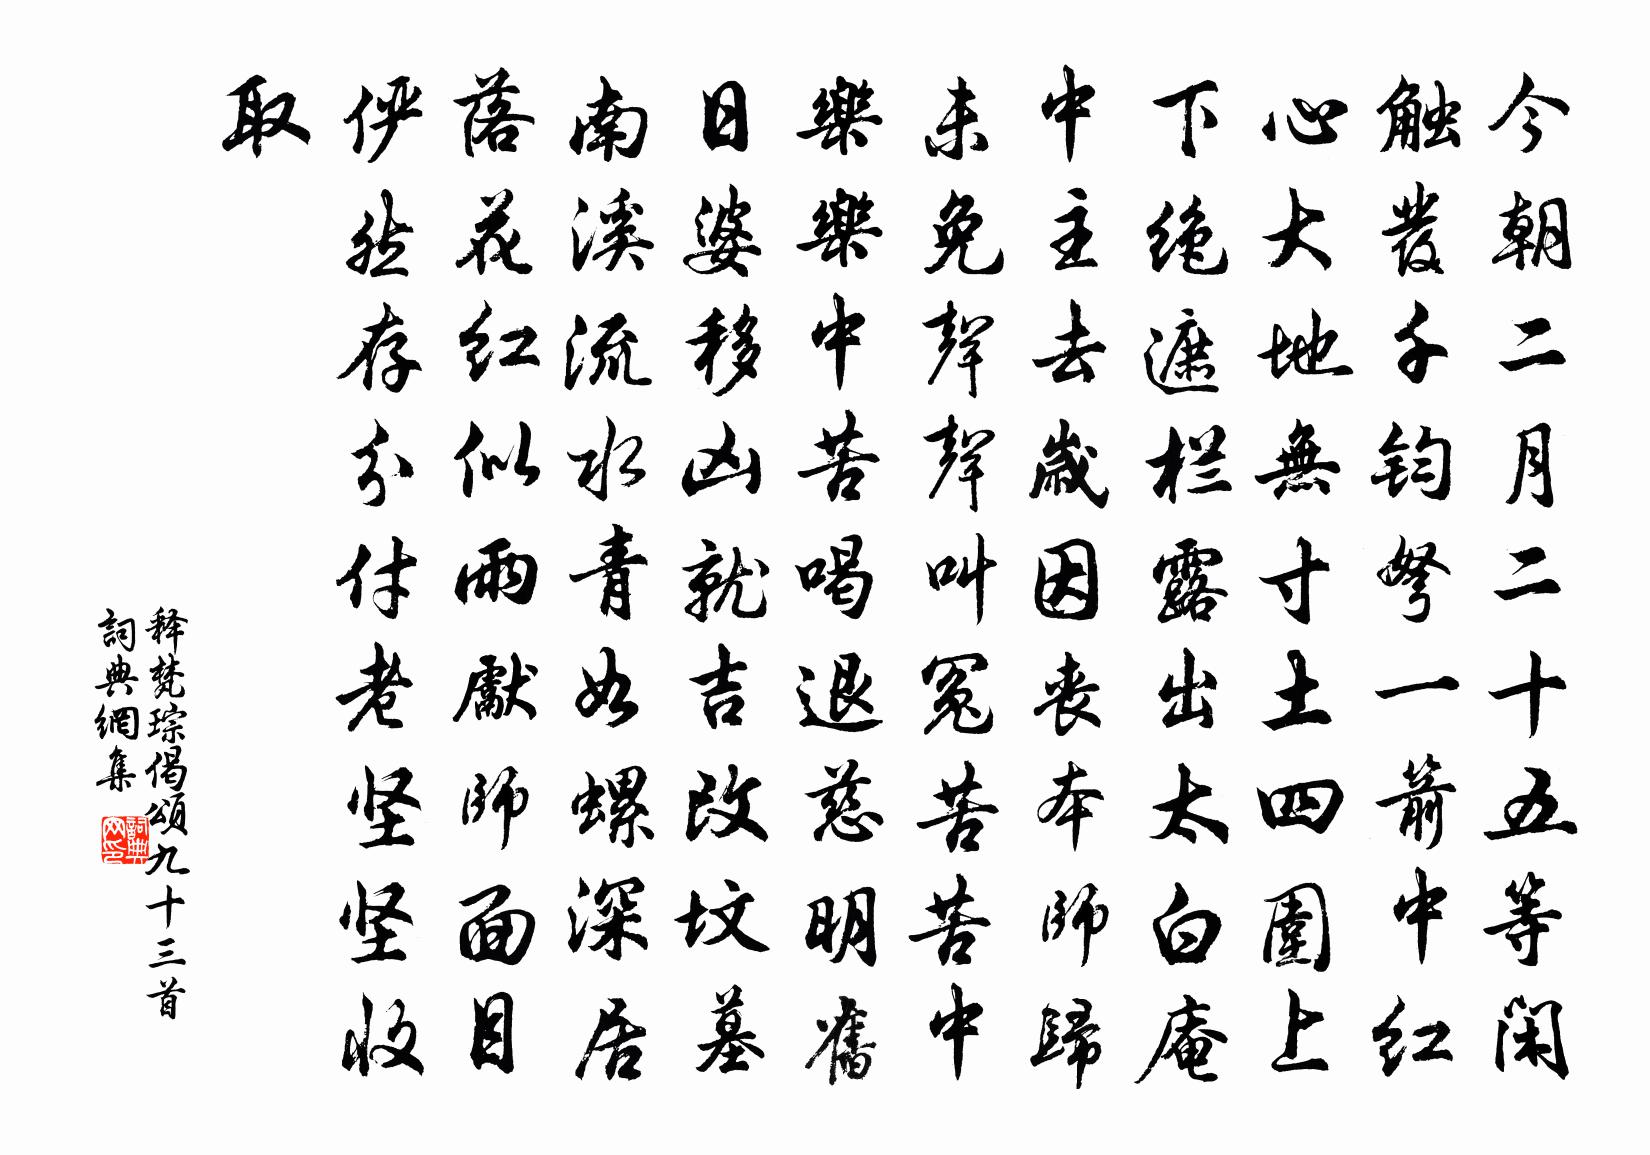 今朝二月二十五等閑
触發千鈞弩一箭中红
心大地無寸土四圍上
下绝遮栏露出太白庵
中主去歲因丧本師歸
未免聲聲叫冤苦苦中
樂樂中苦喝退慈明舊
日婆移凶就吉改坟墓
南溪流水青如螺深居
落花红似雨獻師面目
俨然存分付老坚坚收
取
释梵琮偈頌九十三首
詞典網集
詞典网印